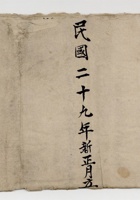 民國二十九年新正月立